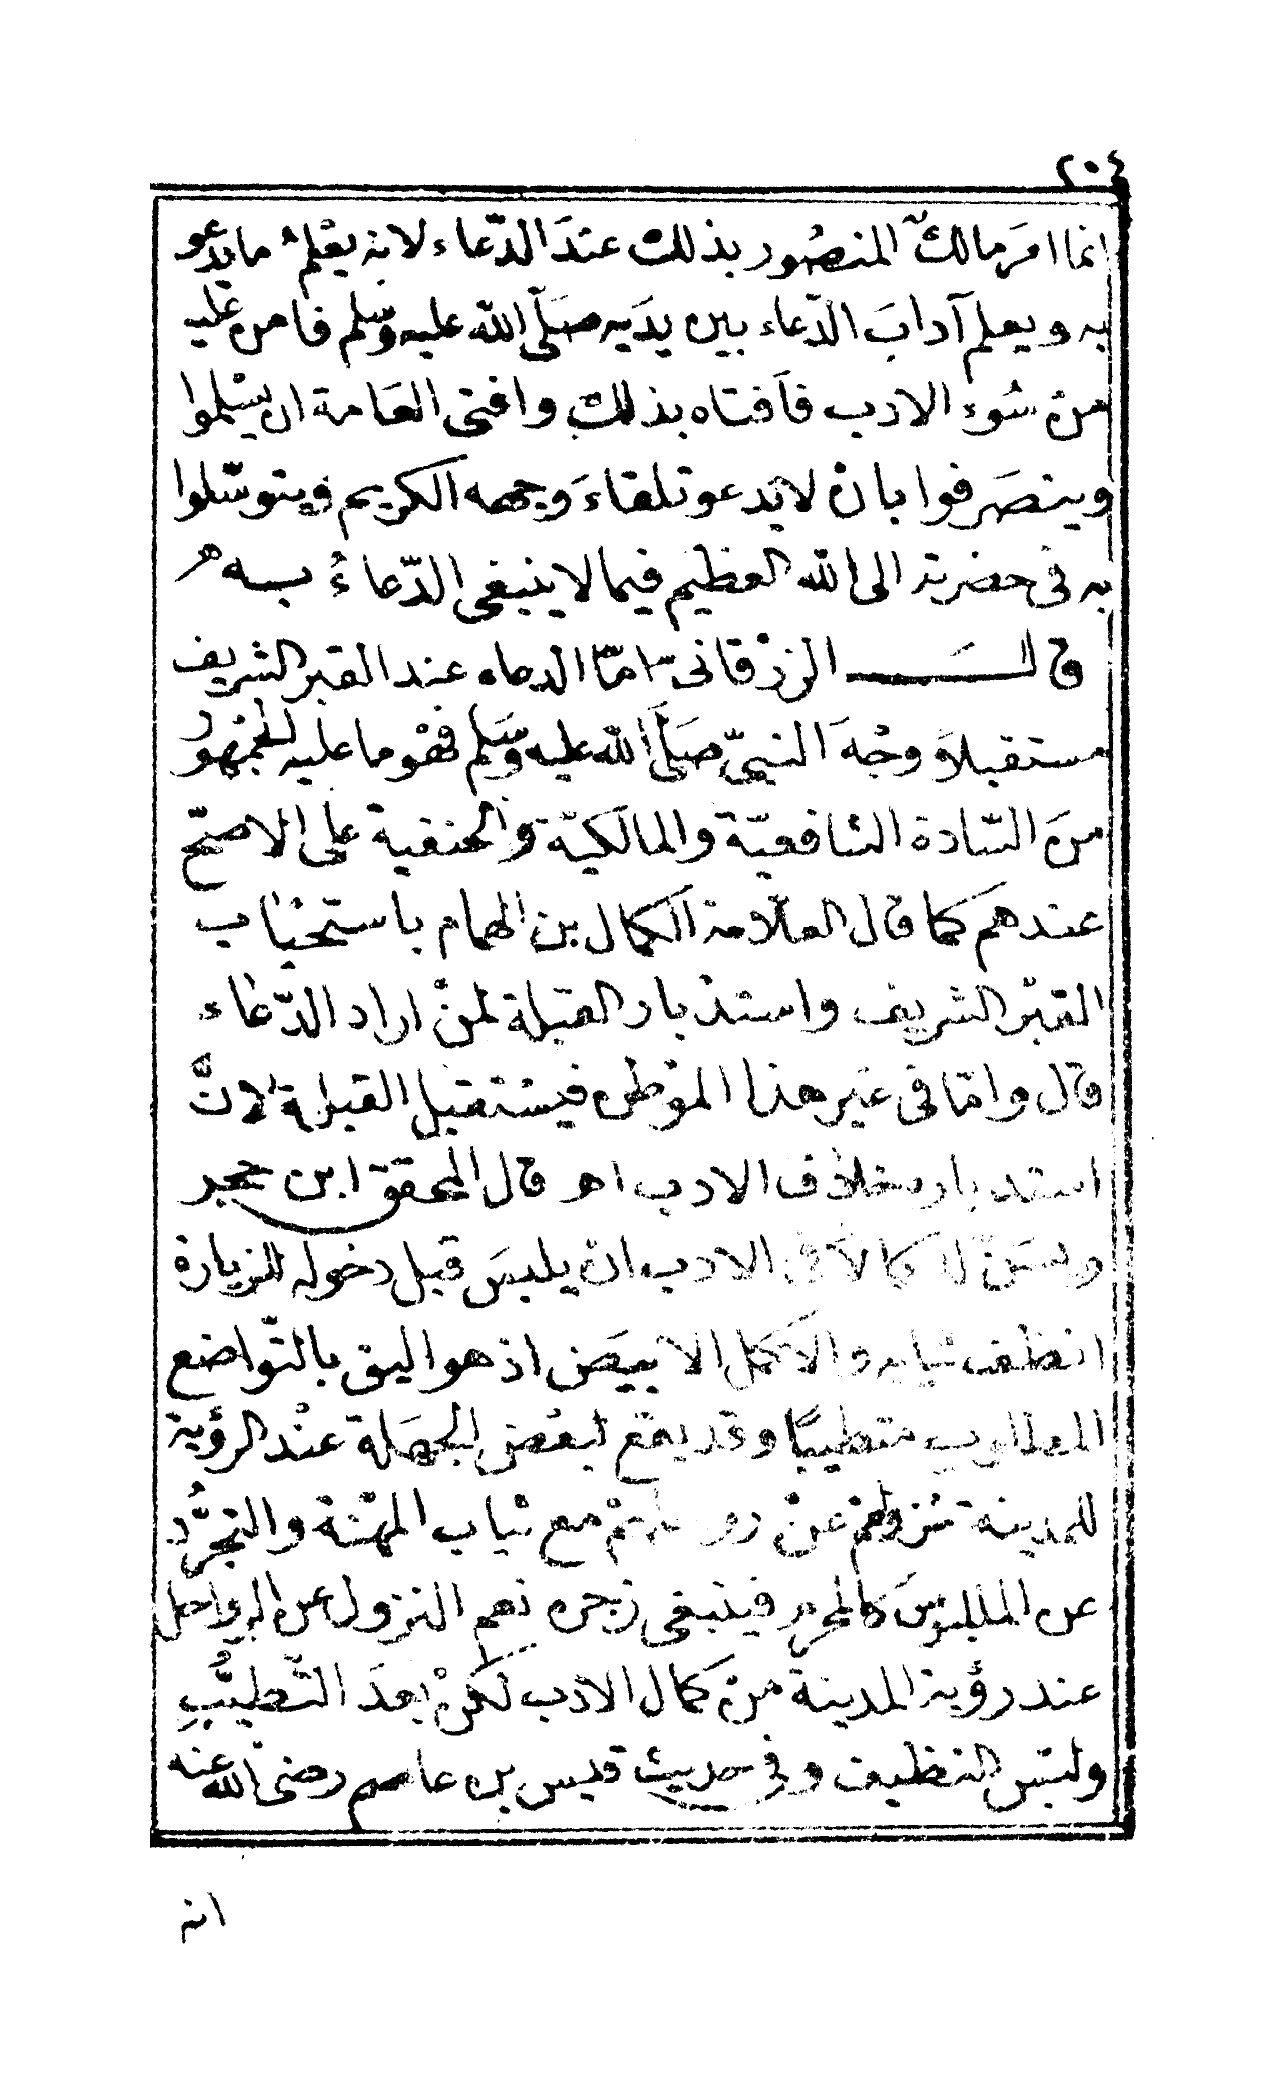 ٢٠٤
انما امَرَ مالكٌ المنصُور بذلك عندَ الدّعاء لانه يعْلمُ ما يدعو
به ويعلم آدابَ الدّعاء بين يدَيه صَلّى الله عليه وسّلم فامن عليه
منْ سُوء الادب فاَفتاه بذلك وافتى العَامة ان يسْلموا
وينصَرفوا بانْ لا يَدعو تلقاءَ وجهه الكريم ويتوسّلوا
به فى حضرته الى الله العظيم فيما لا ينبغى الدّعاءُ بــه هر
قالــــَــــ الزرْقانى امّا الدعاء عند القبر الشريف
مستقبلاً وجْهَ النبيّ صَلّى الله عليه وسَلم فهْو ما عليه الجمْهورُ
منَ السّادة الشافعيّة والمالكيّة والحنفية على الاصحّ
عندهم كما قال العلاّمة الكمال بن الهمام باستحْبَاب
القبْر الشريف واستدْبار القبلة لمنْ اراد الدّعَاء
قال وامّا فى غير هذا الموْطن فيسْتقبل القبلة لانَّ
استدباره خلاف الادب اهـ قال المحقق ابن حجر
ويسَنّ له كمالاً فى الادب ان يلبسَ قبل دخوله للزيارة
انظف ثيابه والاكمل الابيَض اذ هو اليق بالتّواضع
المطلوب متطيبًا وقد يقع لبعْض الجهَلة عنْد الرؤية
للمدينة نُزولهمْ عنْ رواحلهمْ مع ثياب المهْنة والتجرُّد
عن الملبُوسَ كالمحرم فينبغى زجره نعم النزول عن الرواحل
عند رؤية المدينة منْ كمال الادب لكنْ بعدَ التّطيُّبِ
ولبْس النظيف وفى حديث قيس بن عاصم رضىَ الله عنه
انه